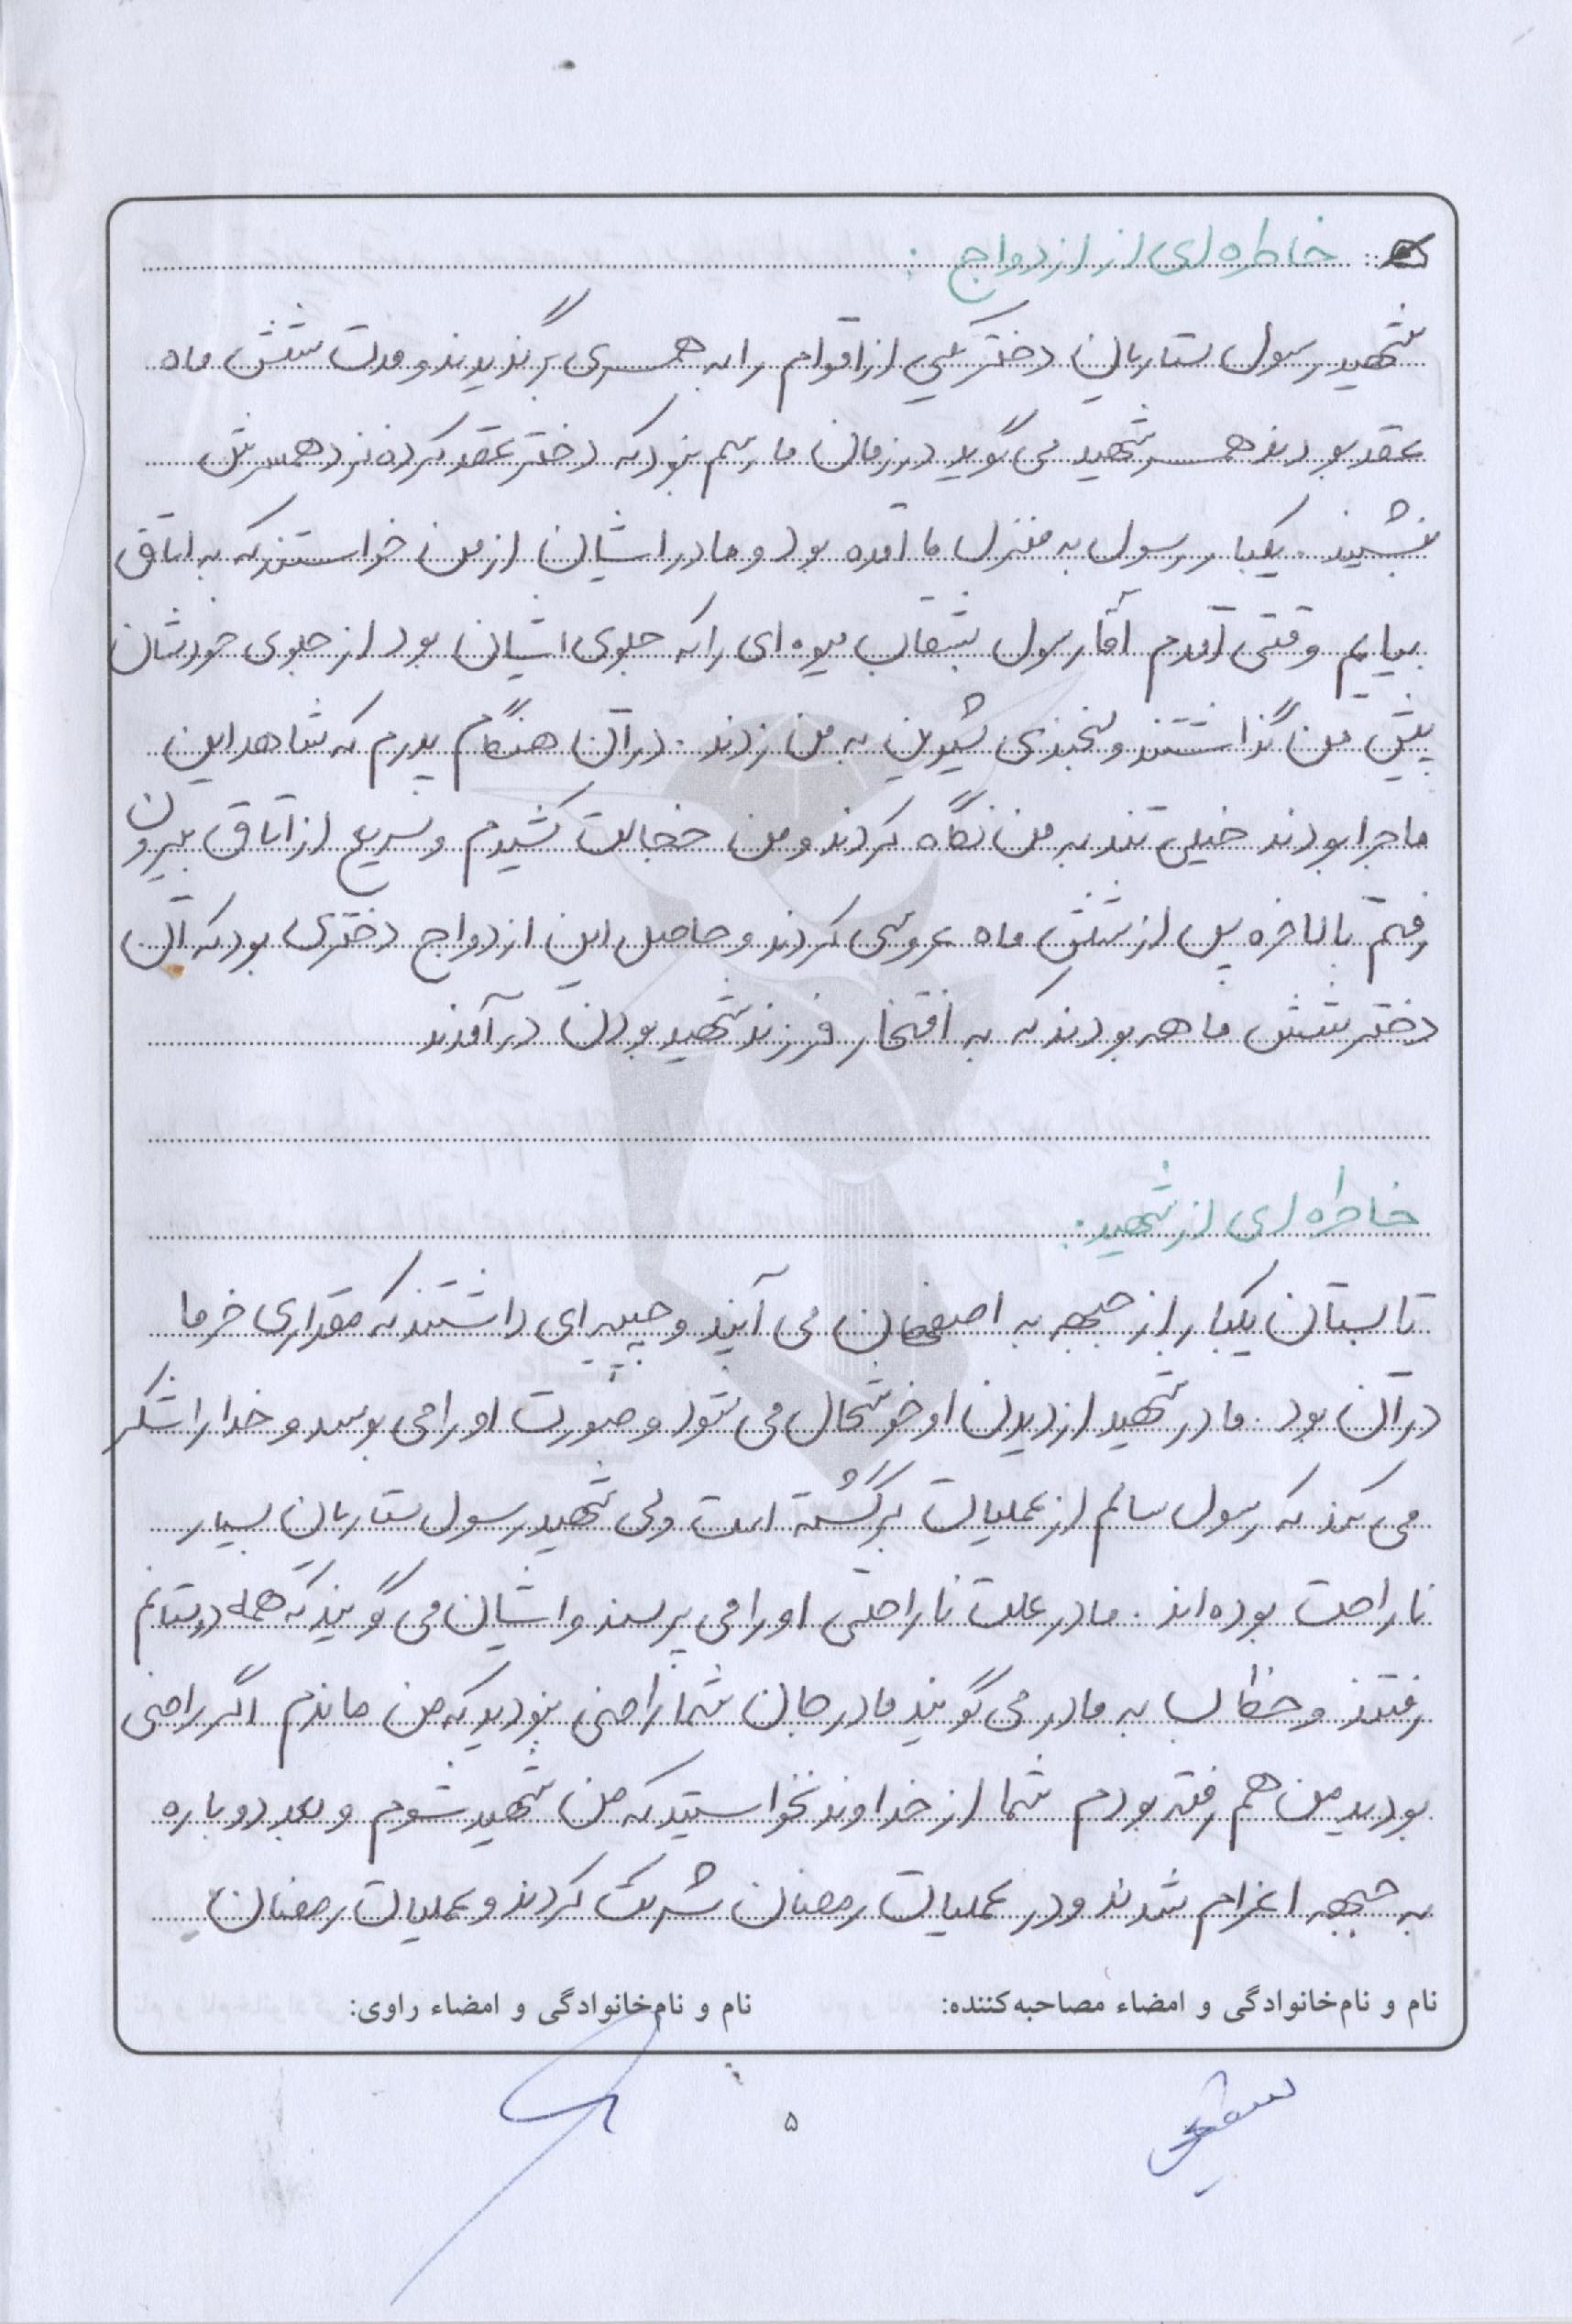 خاطره ای از ازدواج :
شهید رسول ستاریان دختر یکی از اقوام را به همسری برگزیدند و مدت شش ماه
عقد بودند همسر شهید می گوید در زمان ما رسم نبود که دختر عقد کرده نزد همسرش
بنشیند. یکبار رسول به منزل ما آمده بود و مادر ایشان از من خواستند که به اتاق
بیایم وقتی آمدم آقا رسول بشقاب میوه ای را که جلوی ایشان بود از جلوی خودشان
پیش من گذاشتند و لبخندی شیرین به من زدند. در آن هنگام پدرم که شاهد این
ماجرا بودند خیلی تند به من نگاه کردند و من خجالت کشیدم و سریع از اتاق بیرون
رفتم بالاخره پس از شش ماه عروسی کردند و حاصل این ازدواج دختری بود که آن
دختر شش ماهه بودند که به افتخار فرزند شهید بودن درآمدند
خاطره ای از شهید:
تابستان یکبار از جبهه به اصفهان می آیند و چپیه ای داشتند که مقداری خرما
در آن بود. مادر شهید از دیدن او خوشحال می شود و صورت او را می بوسد و خدا را شکر
می کند که رسول سالم از عملیات برگشته است ولی شهید رسول ستاریان بسیار
ناراحت بوده اند. مادر علت ناراحتی او را می پرسند و ایشان می گویند که همه دوستانم
رفتند و خطاب به مادر می گویند مادر جان شما راضی نبودید که من ماندم اگر راضی
بودید من هم رفته بودم شما از خداوند نخواستید که من شهید شوم و بعد دوباره
به جبهه اعزام شدند و در عملیات رمضان شرکت کردند و عملیات رمضان
نام و نام‌خانوادگی و امضاء مصاحبه‌کننده: نام و نام‌خانوادگی و امضاء راوی:
۵